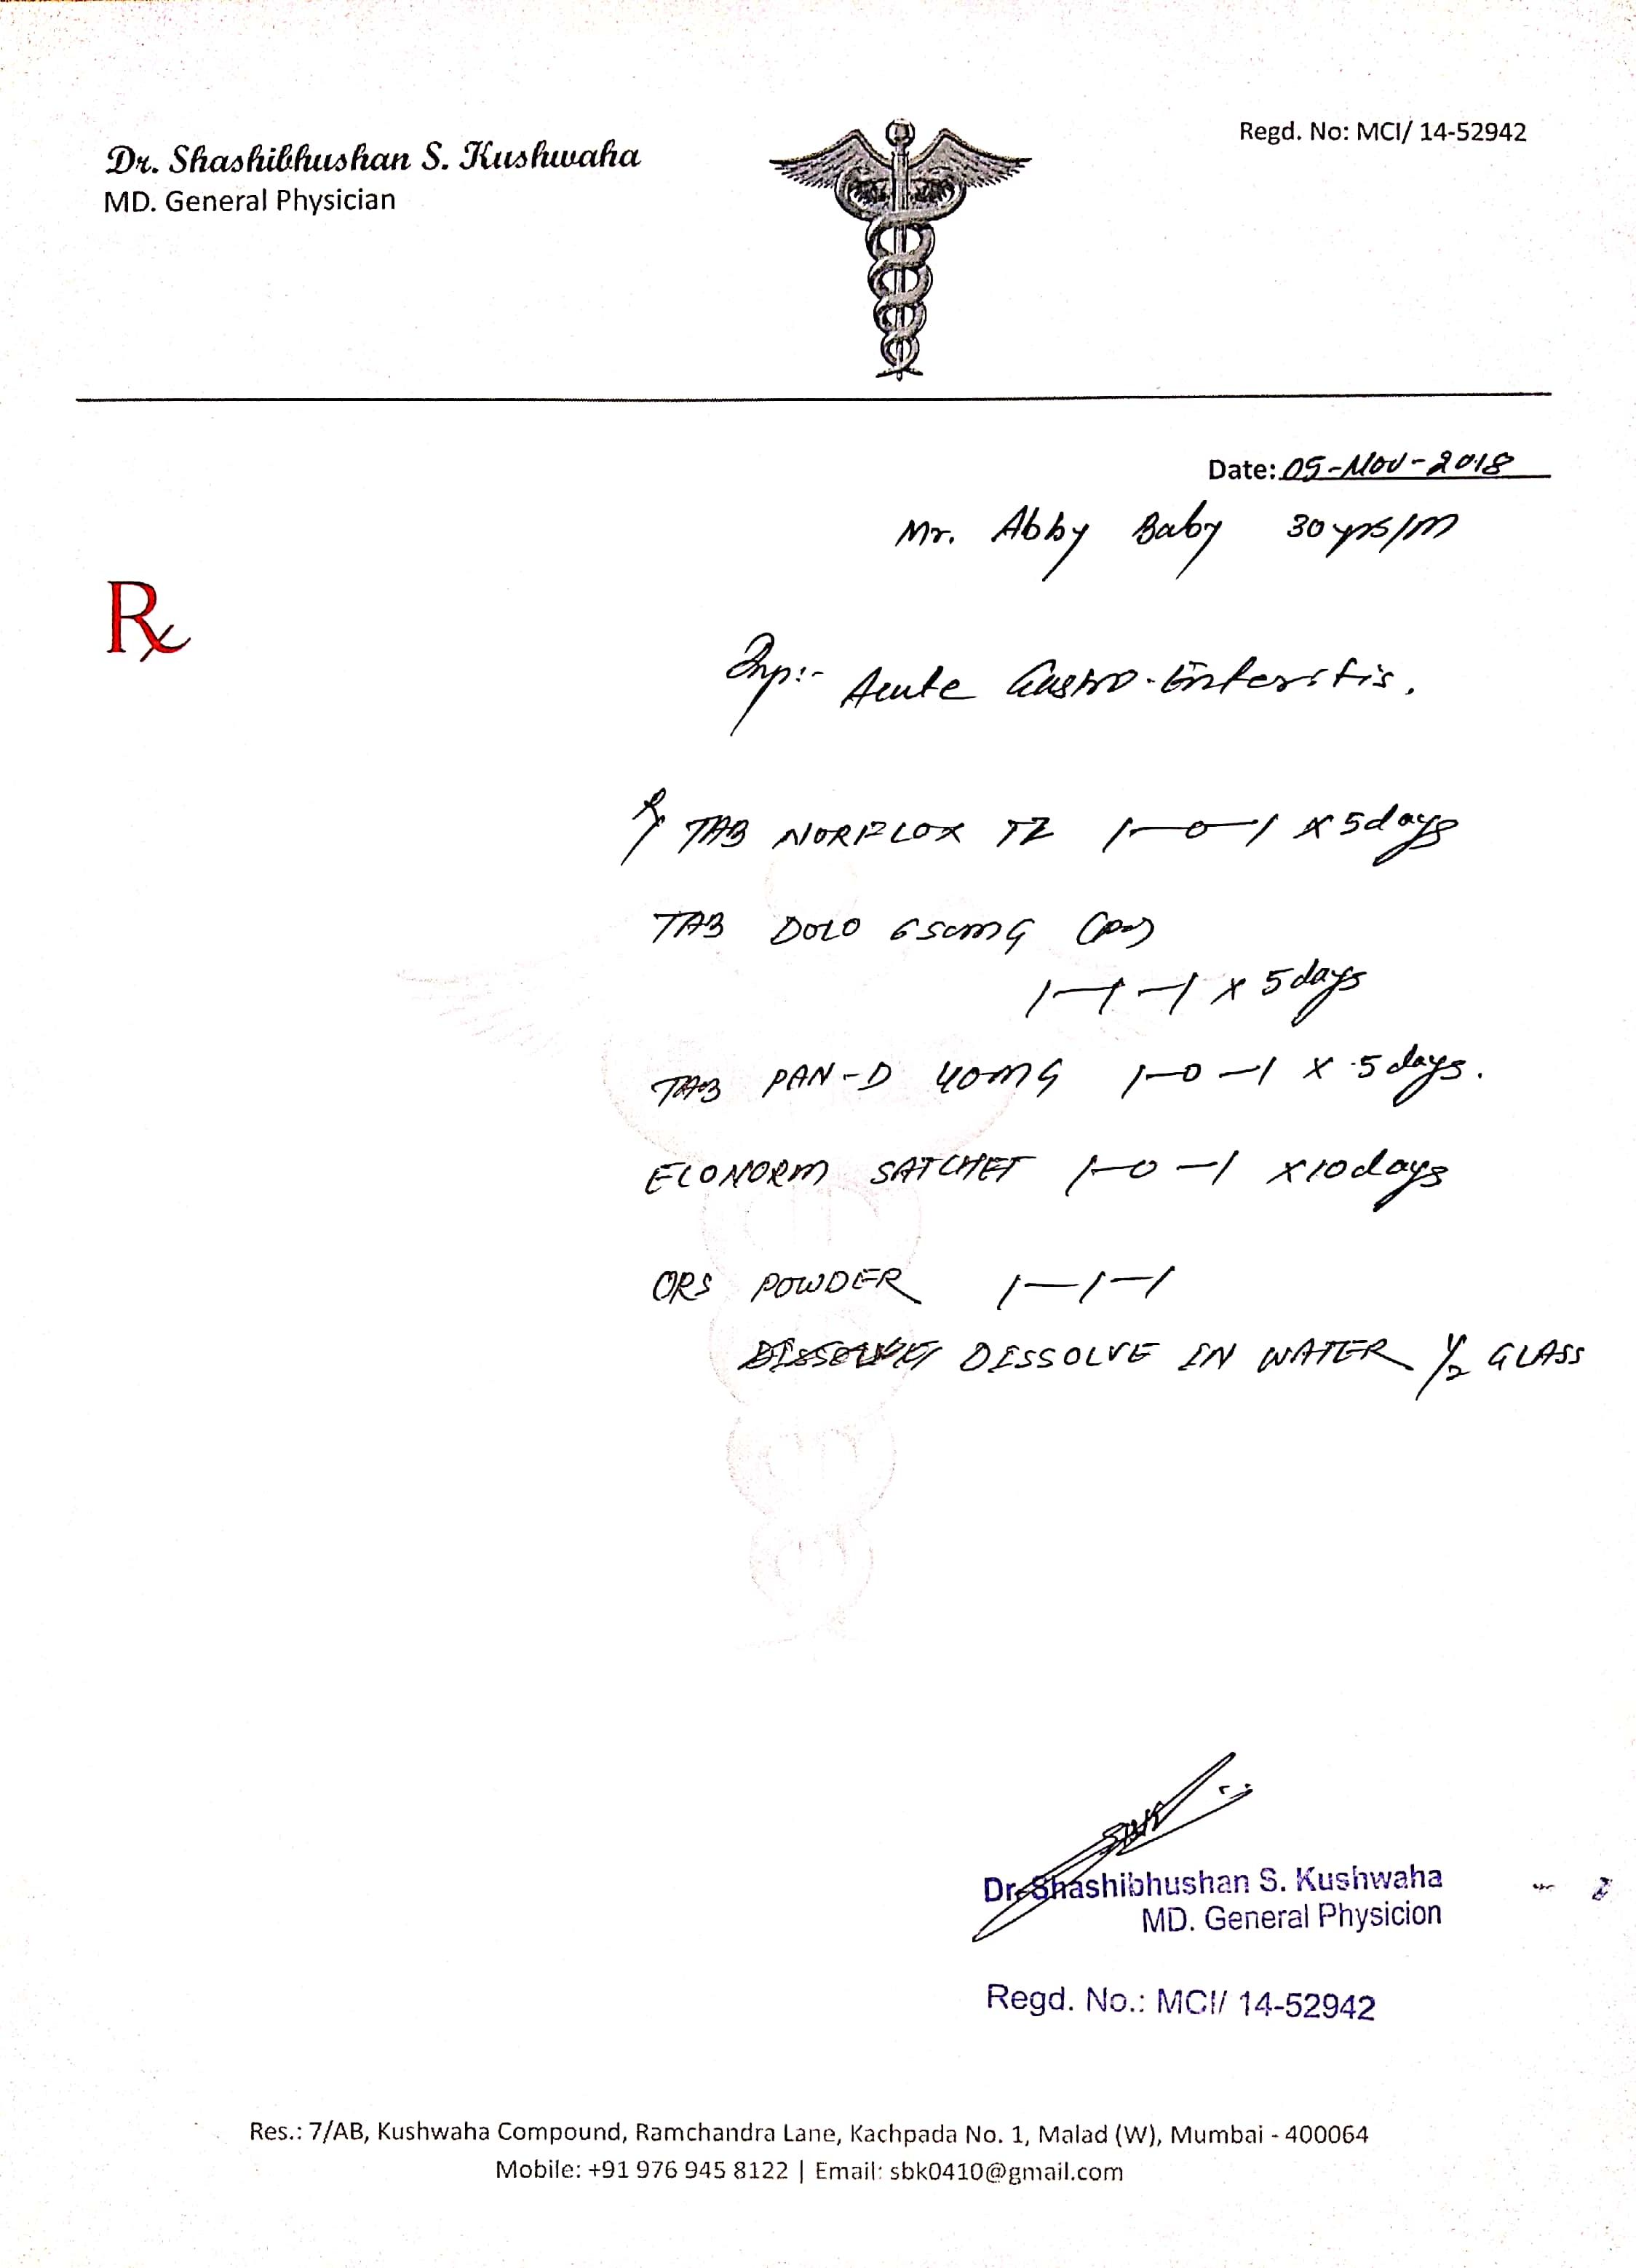 Dr. Shashibhushan S. Kushwaha
MD. General Physician
Regd. No: MCI/ 14-52942
Date: 05-Nov-2018
Mr. Abby Baby 30 yrs/M
Rx
Imp:- Acute Gastro-Enteritis.
Rx TAB NORFLOX TZ 1-0-1 x 5 days
TAB DOLO 650MG
1-1-1 x 5 days
TAB PAN-D 40MG 1-0-1 x 5 days.
ECONORM SATCHET 1-0-1 x 10 days
ORS POWDER 1-1-1
DISSOLVE IN WATER 1/2 GLASS
Dr. Shashibhushan S. Kushwaha
MD. General Physicion
Regd. No.: MCI/ 14-52942
Res.: 7/AB, Kushwaha Compound, Ramchandra Lane, Kachpada No. 1, Malad (W), Mumbai - 400064
Mobile: +91 976 945 8122 | Email: sbk0410@gmail.com